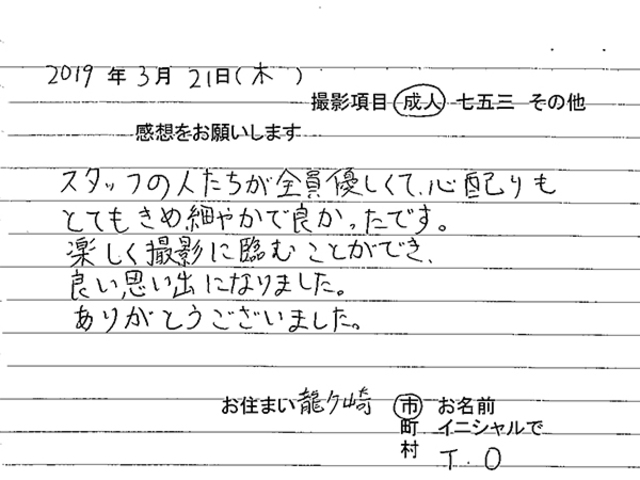 2019年3月21日(木)
撮影項目 成人 七五三 その他
感想をお願いします
スタッフの人たちが全員優しくて、心配りも
とてもきめ細やかで良かったです。
楽しく撮影に臨むことができ、
良い思い出になりました。
ありがとうございました。
お住まい 龍ケ崎 市 お名前
町 イニシャルで
村 T.O